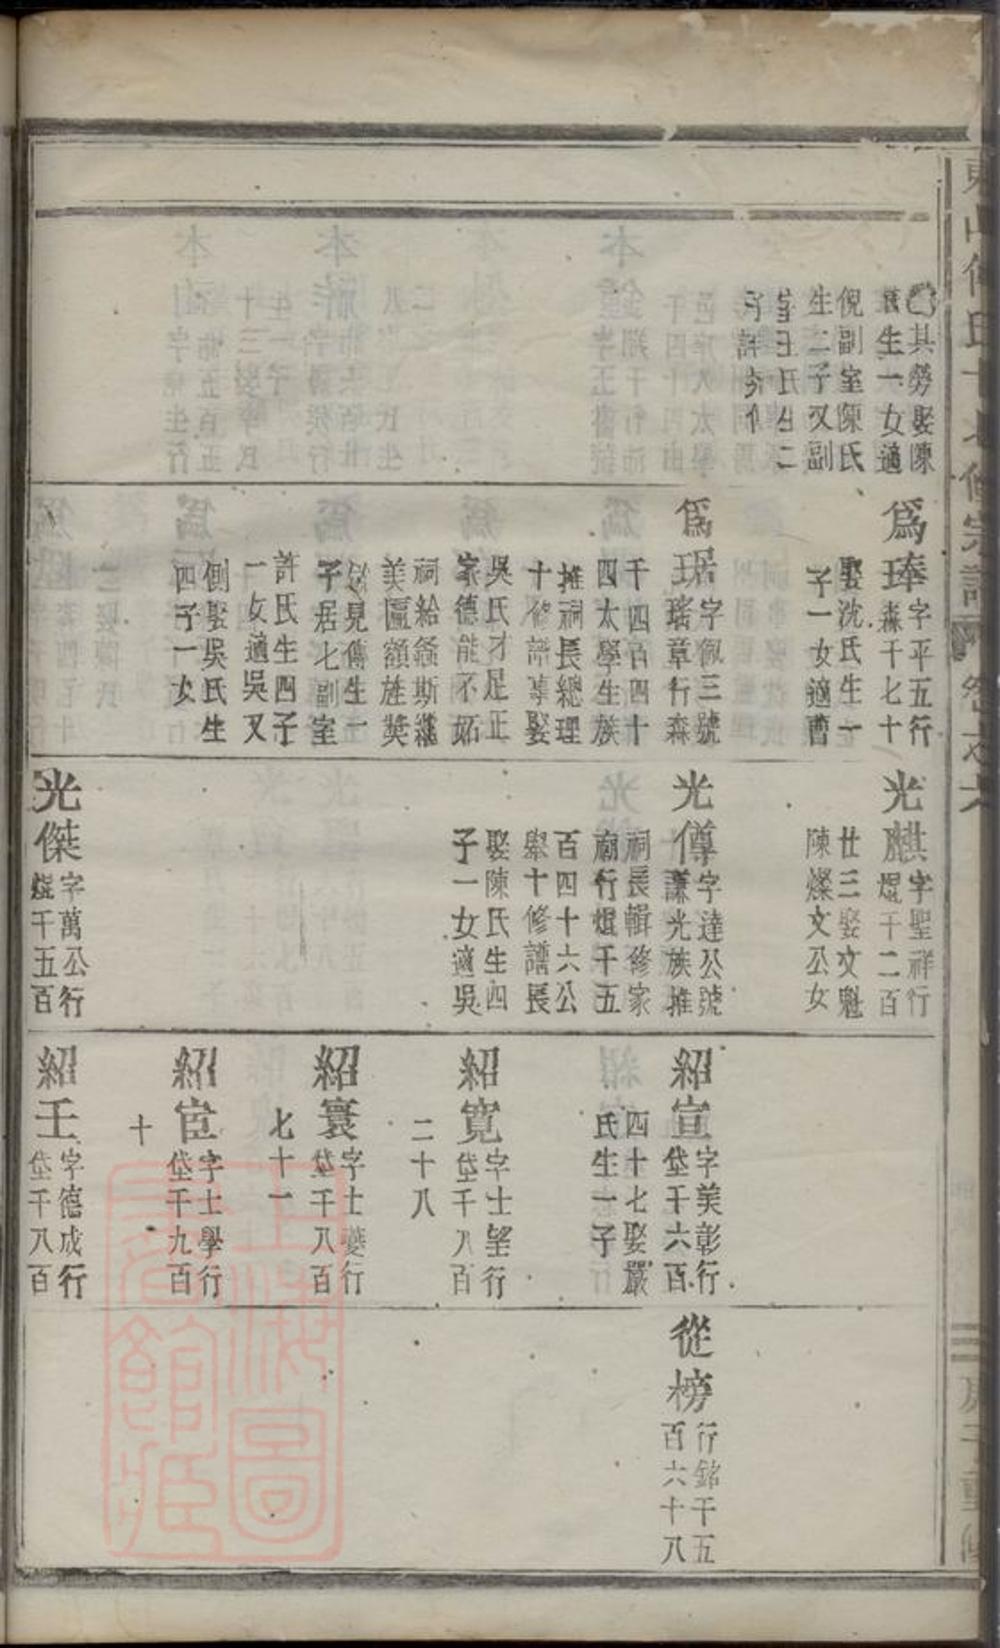 其勞娶陳
生一女適
倪副室陳氏
生二子又副
室王氏生二
子
爲琫字平五行
森千七十
娶沈氏生一
子一女適曹
爲琚字佩三號
瑤章行森
千四百四十
四太學生族
推祠長總理
十修譜事娶
吳氏才足正
家德能不妬
祠給螽斯
美匾額旌奬
見傳生一
子居七副室
許氏生四子
一女適吳又
側娶吳氏生
四子一女
光麒字聖祥行
焜千二百
廿三娶文魁
陳燦文公女
光僔字達公號
謙光族推
祠長輯修家
廟行焜千五
百四十六公
舉十修譜長
娶陳氏生四
子一女適吳
光傑字萬公行
焜千五百
紹宣字美彰行
垈千六百
四十七娶嚴
氏生一子
紹寬字士望行
垈千八百
二十八
紹寰字士夔行
垈千八百
七十一
紹宦字士學行
垈千九百
十
紹壬字德成行
垈千八百
從榜行銘千五
百六十八
上海圖書館藏